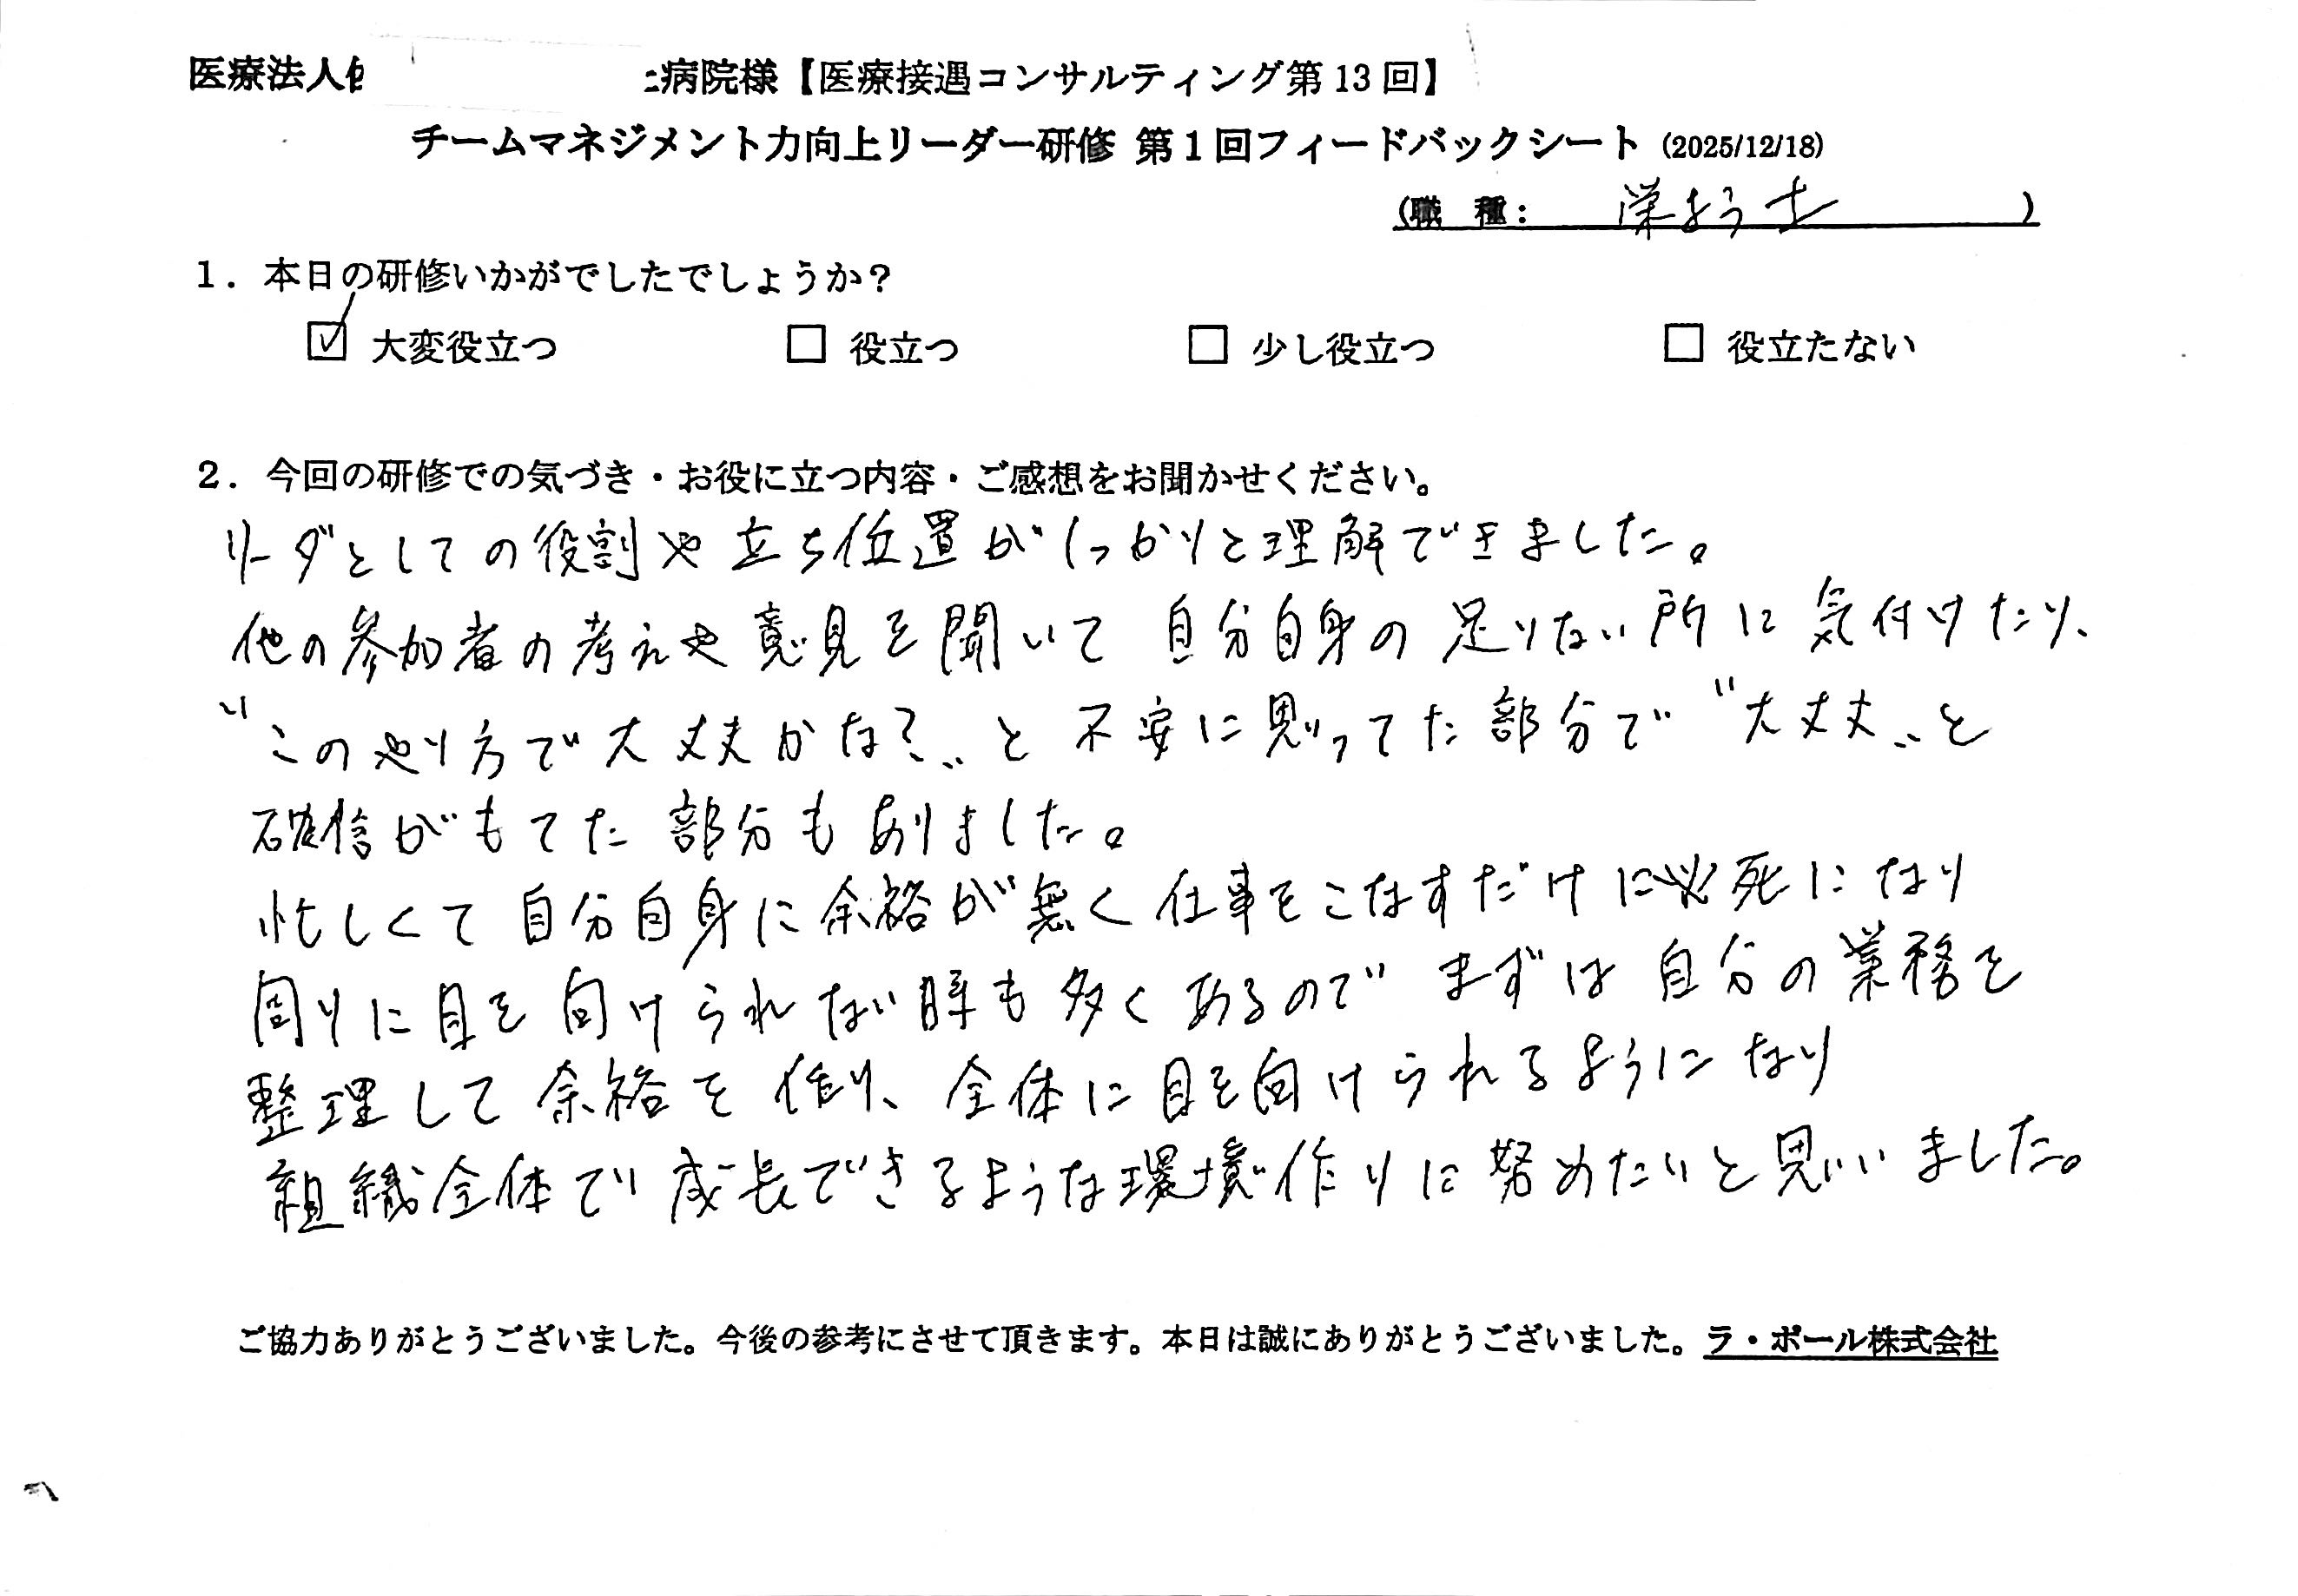 医療法人
病院様【医療接遇コンサルティング第13回】
チームマネジメント力向上リーダー研修 第1回フィードバックシート (2025/12/18)
(職 種: 栄よう士 )
1. 本日の研修いかがでしたでしょうか?
☑ 大変役立つ □ 役立つ □ 少し役立つ □ 役立たない
2. 今回の研修での気づき・お役に立つ内容・ご感想をお聞かせください。
リーダとしての役割や立ち位置がしっかりと理解できました。
他の参加者の考えや意見を聞いて自分自身の足りない所に気付けたり、
"このやり方で大丈夫かな?"と不安に思ってた部分で"大丈夫"と
確信がもてた部分もありました。
忙しくて自分自身に余裕が無く仕事をこなすだけに必死になり
周りに目を向けられない時も多くあるのでまずは自分の業務を
整理して余裕を作り、全体に目を向けられるようになり
組織全体で成長できるような環境作りに努めたいと思いました。
ご協力ありがとうございました。今後の参考にさせて頂きます。本日は誠にありがとうございました。ラ・ポール株式会社